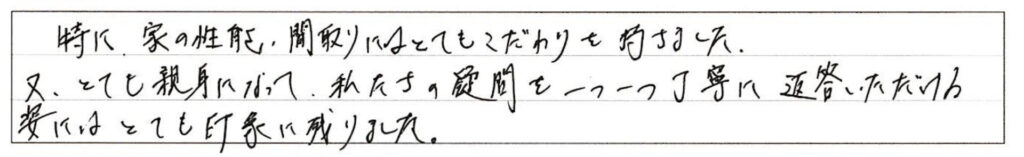 特に、家の性能、間取りにはとてもこだわりを持ちました。
又、とても親身になって、私たちの疑問を一つ一つ丁寧に返答いただける
姿にはとても印象に残りました。